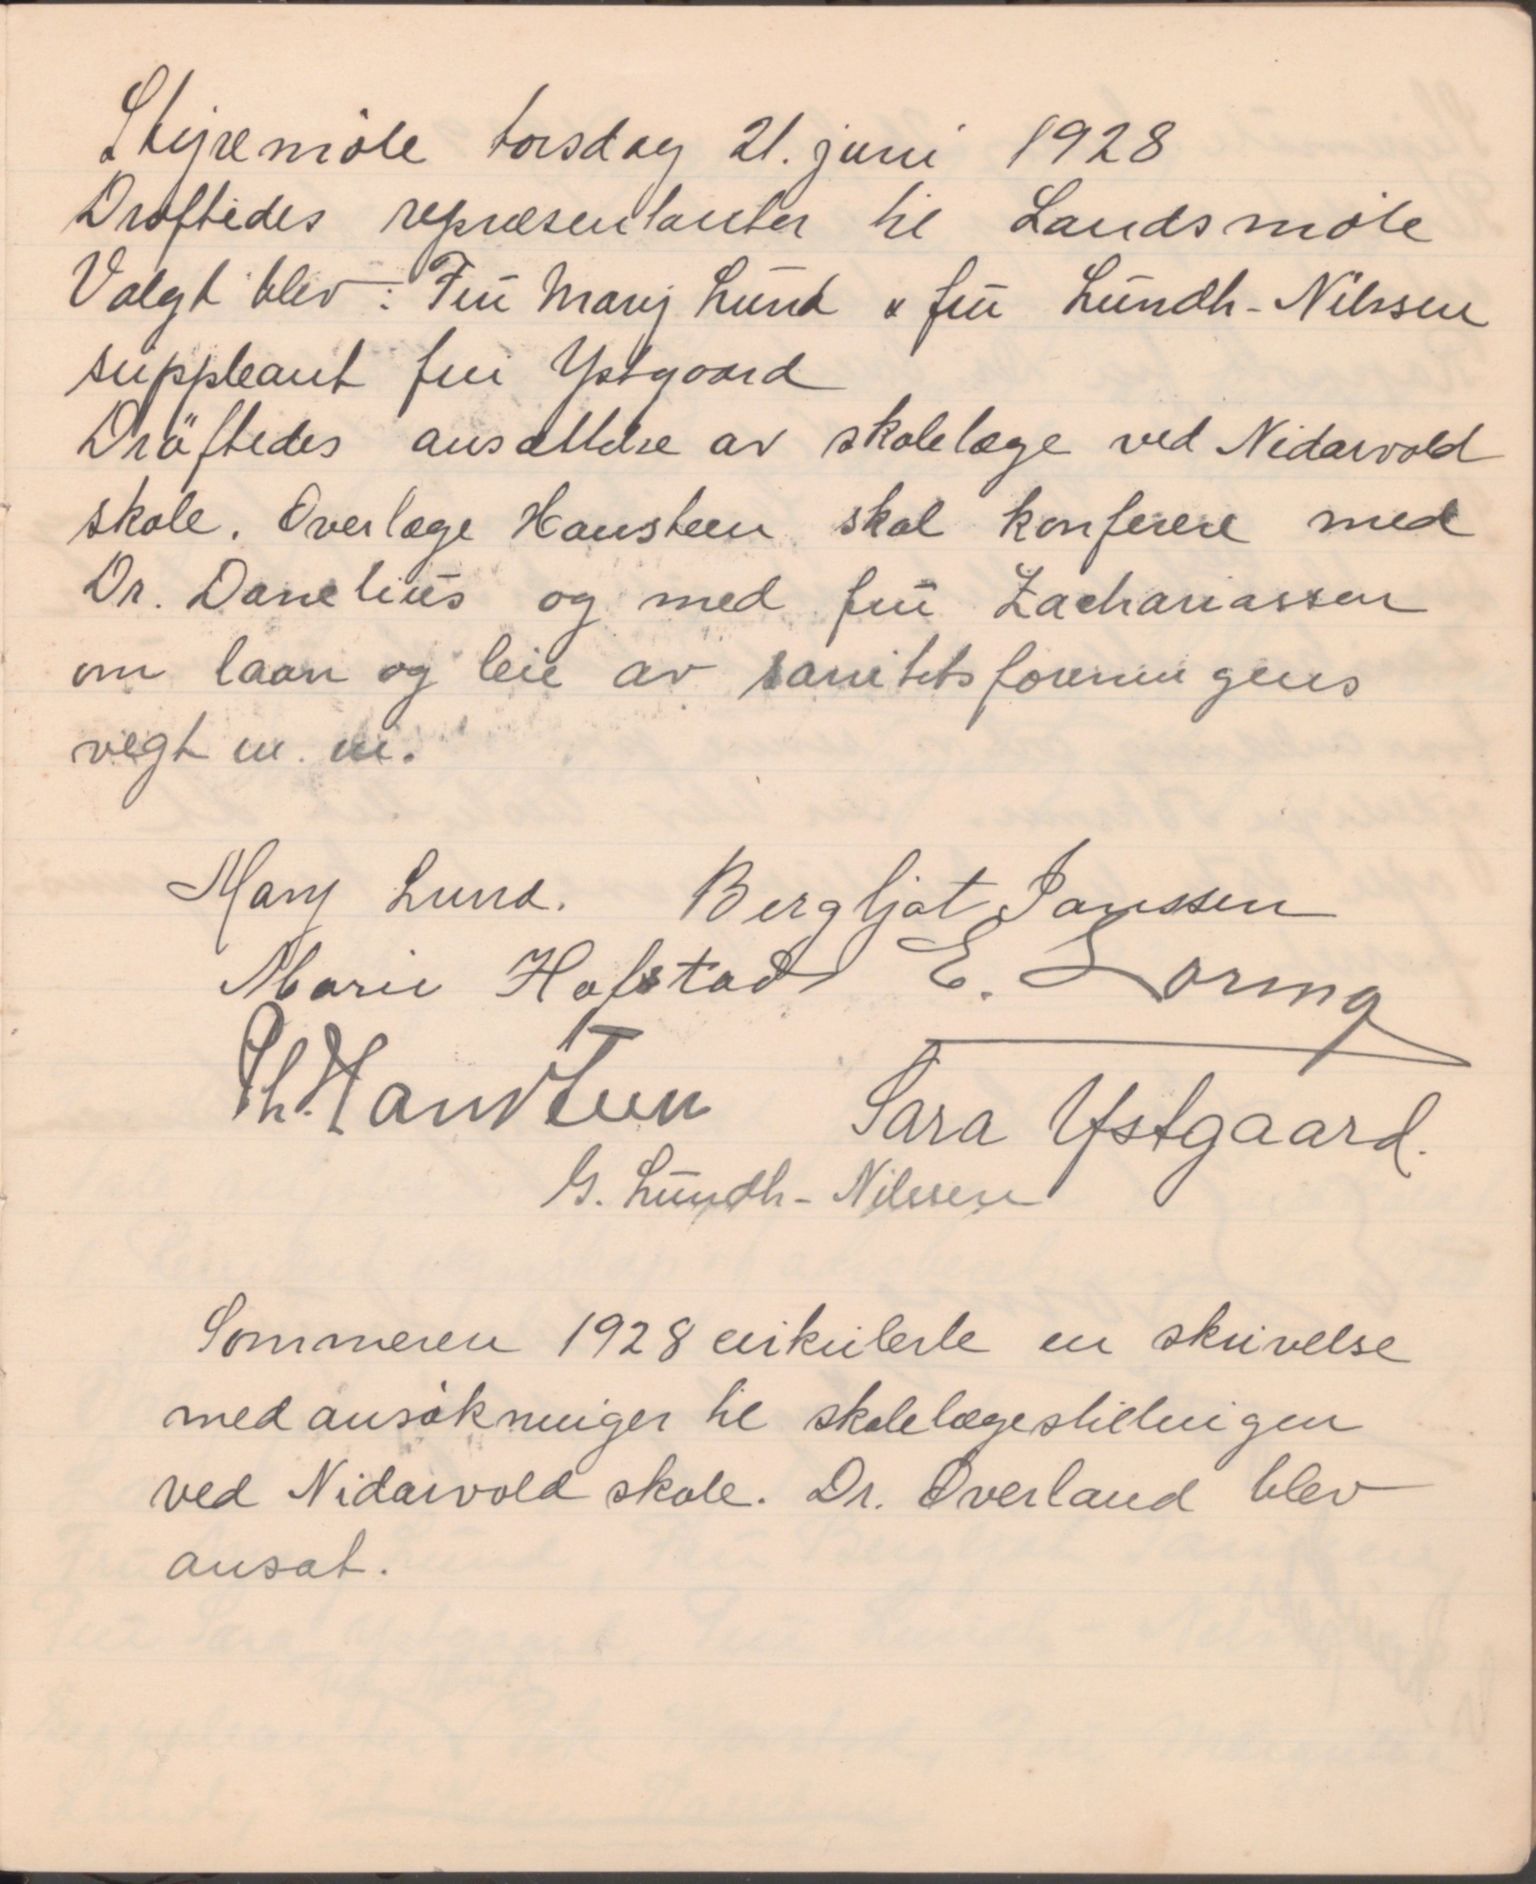 Styremöte torsdag 21. juni 1928
Dröftedes repræsentanter til Landsmöte
Valgt blev: Fru Mary Lund & fru Lundh-Nilssen
suppleant fru Ystgaard
Dröftedes ansættelse av skolelæge ved Nidarvold
skole. Overlæge Hansteen skal konferere med
Dr. Danelius og med fru Zachariassen
om laan og leie av sanitetsforeningens
vegt m. m.
Mary Lund. Bergljot Janssen
Marie Hofstad E. Loring
Th. Hansteen Sara Ystgaard.
G. Lundh-Nilssen
Sommeren 1928 cirkulerte en skrivelse
med ansökninger til skolelægestillingen
ved Nidarvold skole. Dr. Overland blev
ansat.